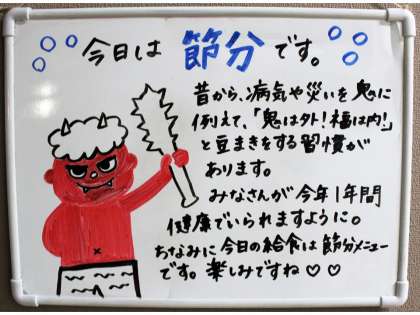 今日は 節分 です。
昔から、病気や災いを鬼に
例えて、「鬼は外！福は内！」
と豆まきをする習慣が
あります。
みなさんが今年1年間
健康でいられますように。
ちなみに今日の給食は節分メニュー
です。楽しみですね♡♡